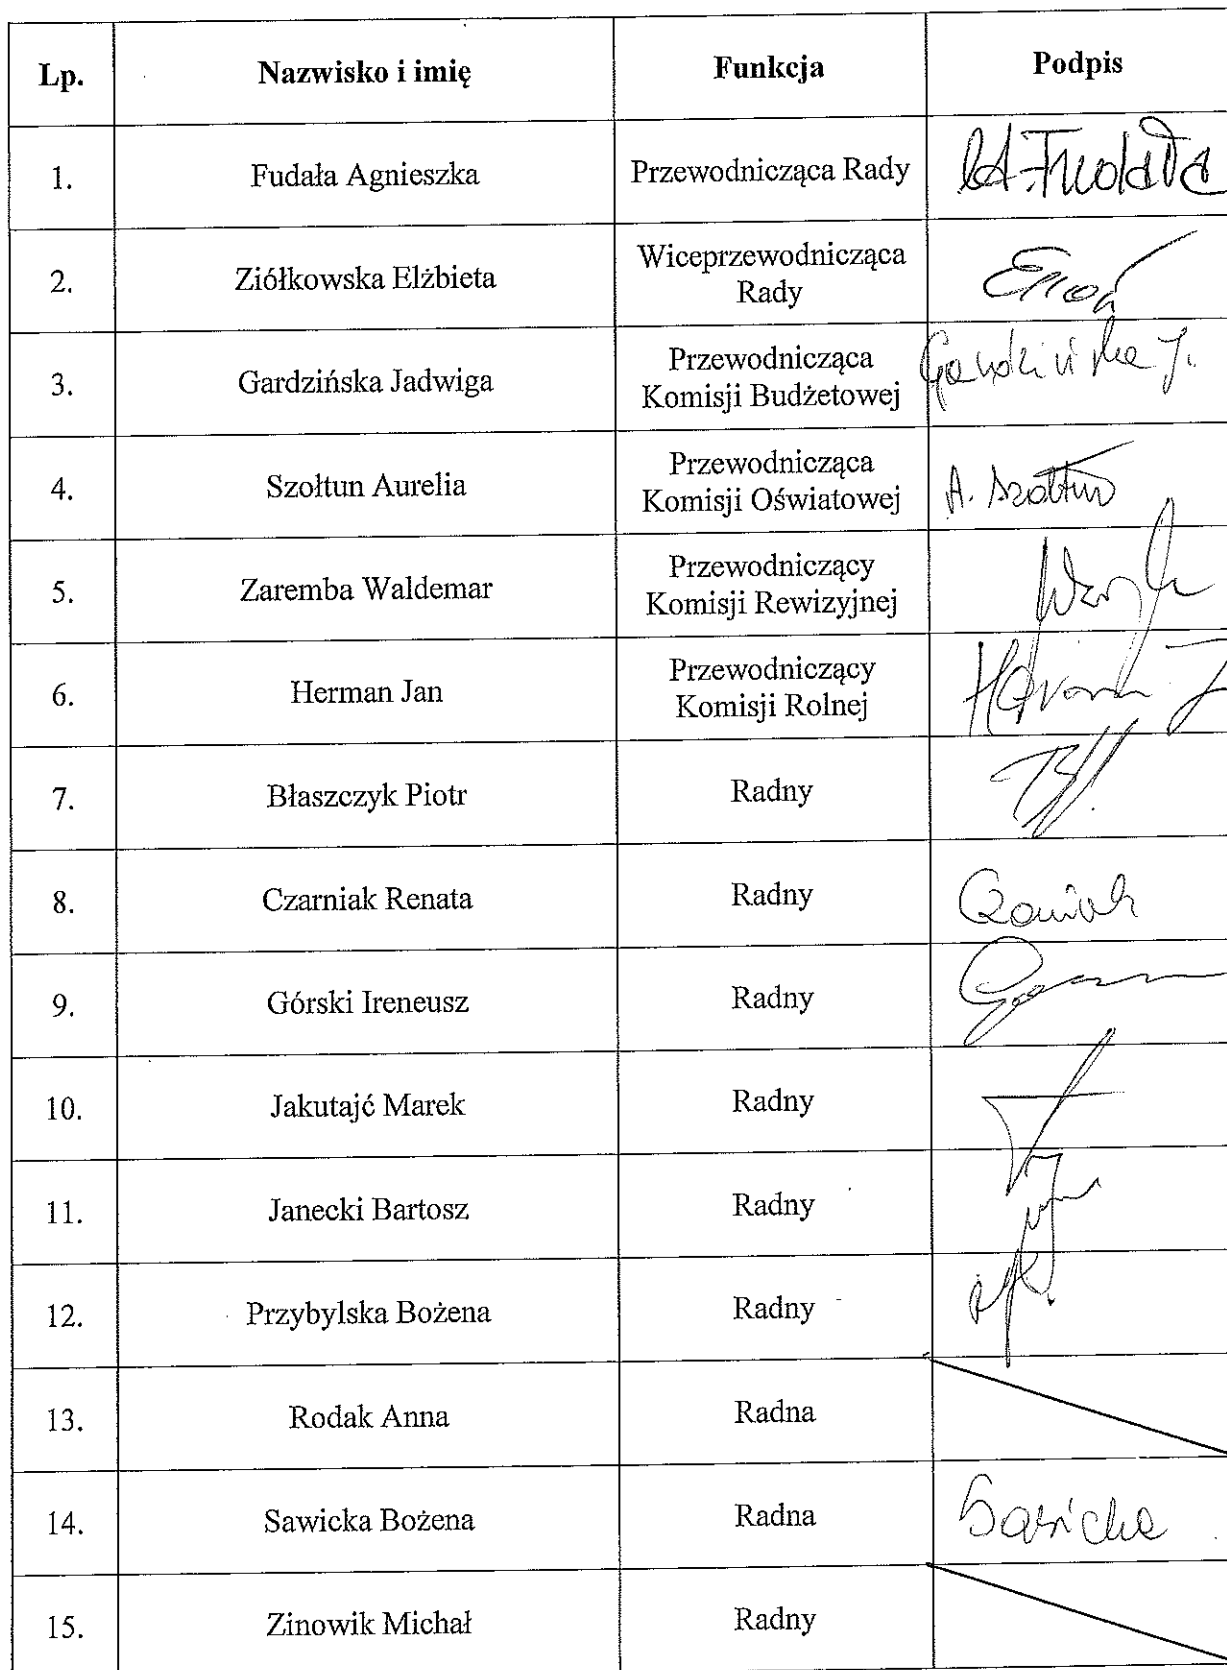 Lp. Nazwisko i imię Funkcja Podpis
1. Fudała Agnieszka Przewodnicząca Rady A. Fudała
2. Ziółkowska Elżbieta Wiceprzewodnicząca
Rady
3. Gardzińska Jadwiga Przewodnicząca
Komisji Budżetowej Gardzińska J.
4. Szołtun Aurelia Przewodnicząca
Komisji Oświatowej A. Szołtun
5. Zaremba Waldemar Przewodniczący
Komisji Rewizyjnej
6. Herman Jan Przewodniczący
Komisji Rolnej Herman J
7. Błaszczyk Piotr Radny
8. Czarniak Renata Radny Czarniak
9. Górski Ireneusz Radny
10. Jakutajć Marek Radny
11. Janecki Bartosz Radny
12. Przybylska Bożena Radny
13. Rodak Anna Radna
14. Sawicka Bożena Radna Sawicka
15. Zinowik Michał Radny